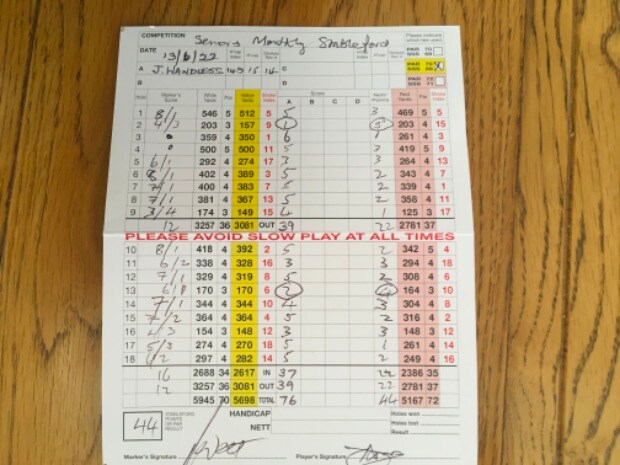 COMPETITION Seniors Monthly Stableford
DATE 13/6/22
Please indicate which tee used
A J. WANDLESS 15 14 C
B D
Hole Marker's Score White Yards Par Yellow Yards Stroke Index A B C D Score Nett/Points Red Yards Par Stroke Index
1 8/1 546 5 512 5 5 3 469 5 5
2 4/3 203 3 157 9 1 5 203 4 15
3 359 4 350 1 6 1 261 4 3
4 500 5 500 11 5 2 419 5 9
5 6/1 292 4 274 17 3 3 264 4 13
6 8/1 402 4 389 3 5 2 343 4 7
7 7/1 400 4 383 7 5 2 339 4 1
8 7/1 381 4 367 13 5 2 358 4 11
9 3/4 174 3 149 15 4 1 125 3 17
12 3257 36 3081 OUT 39 22 2781 37
PLEASE AVOID SLOW PLAY AT ALL TIMES
10 8/1 418 4 392 2 5 2 342 5 4
11 6/2 338 4 328 16 3 3 294 4 18
12 7/1 329 4 319 8 5 2 308 4 6
13 170 3 170 6 2 4 164 3 10
14 7/1 344 4 344 10 4 3 304 4 8
15 7/2 364 4 364 4 5 2 316 4 2
16 4/3 154 3 148 12 3 3 148 3 12
17 5/3 274 4 270 18 5 1 261 4 14
18 297 4 282 14 5 2 249 4 16
16 2688 34 2617 IN 37 22 2386 35
12 3257 36 3081 OUT 39 22 2781 37
5945 70 5698 TOTAL 76 44 5167 72
44 STABLEFORD POINTS OR PAR RESULT HANDICAP Holes won
NETT Holes lost
Result
Marker's Signature Player's Signature